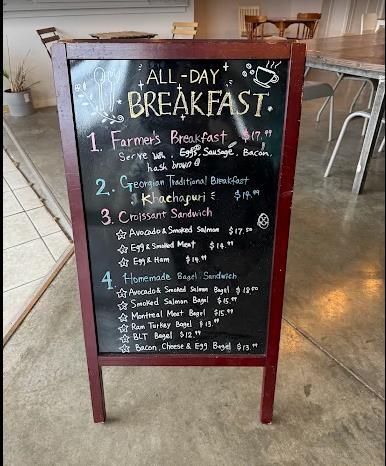 ALL-DAY
BREAKFAST
1. Farmer's Breakfast $17.99
Serve with Eggs, Sausage, Bacon,
hash brown
2. Georgian Traditional Breakfast
Khachapuri $19.99
3. Croissant Sandwich
☆ Avocado & Smoked Salmon $17.50
☆ Egg & Smoked Meat $14.99
☆ Egg & Ham $14.99
4. Homemade Bagel Sandwich
☆ Avocado & Smoked Salmon Bagel $18.50
☆ Smoked Salmon Bagel $15.99
☆ Montreal Meat Bagel $15.99
☆ Ram Turkey Bagel $13.99
☆ BLT Bagel $12.99
☆ Bacon, Cheese & Egg Bagel $13.99